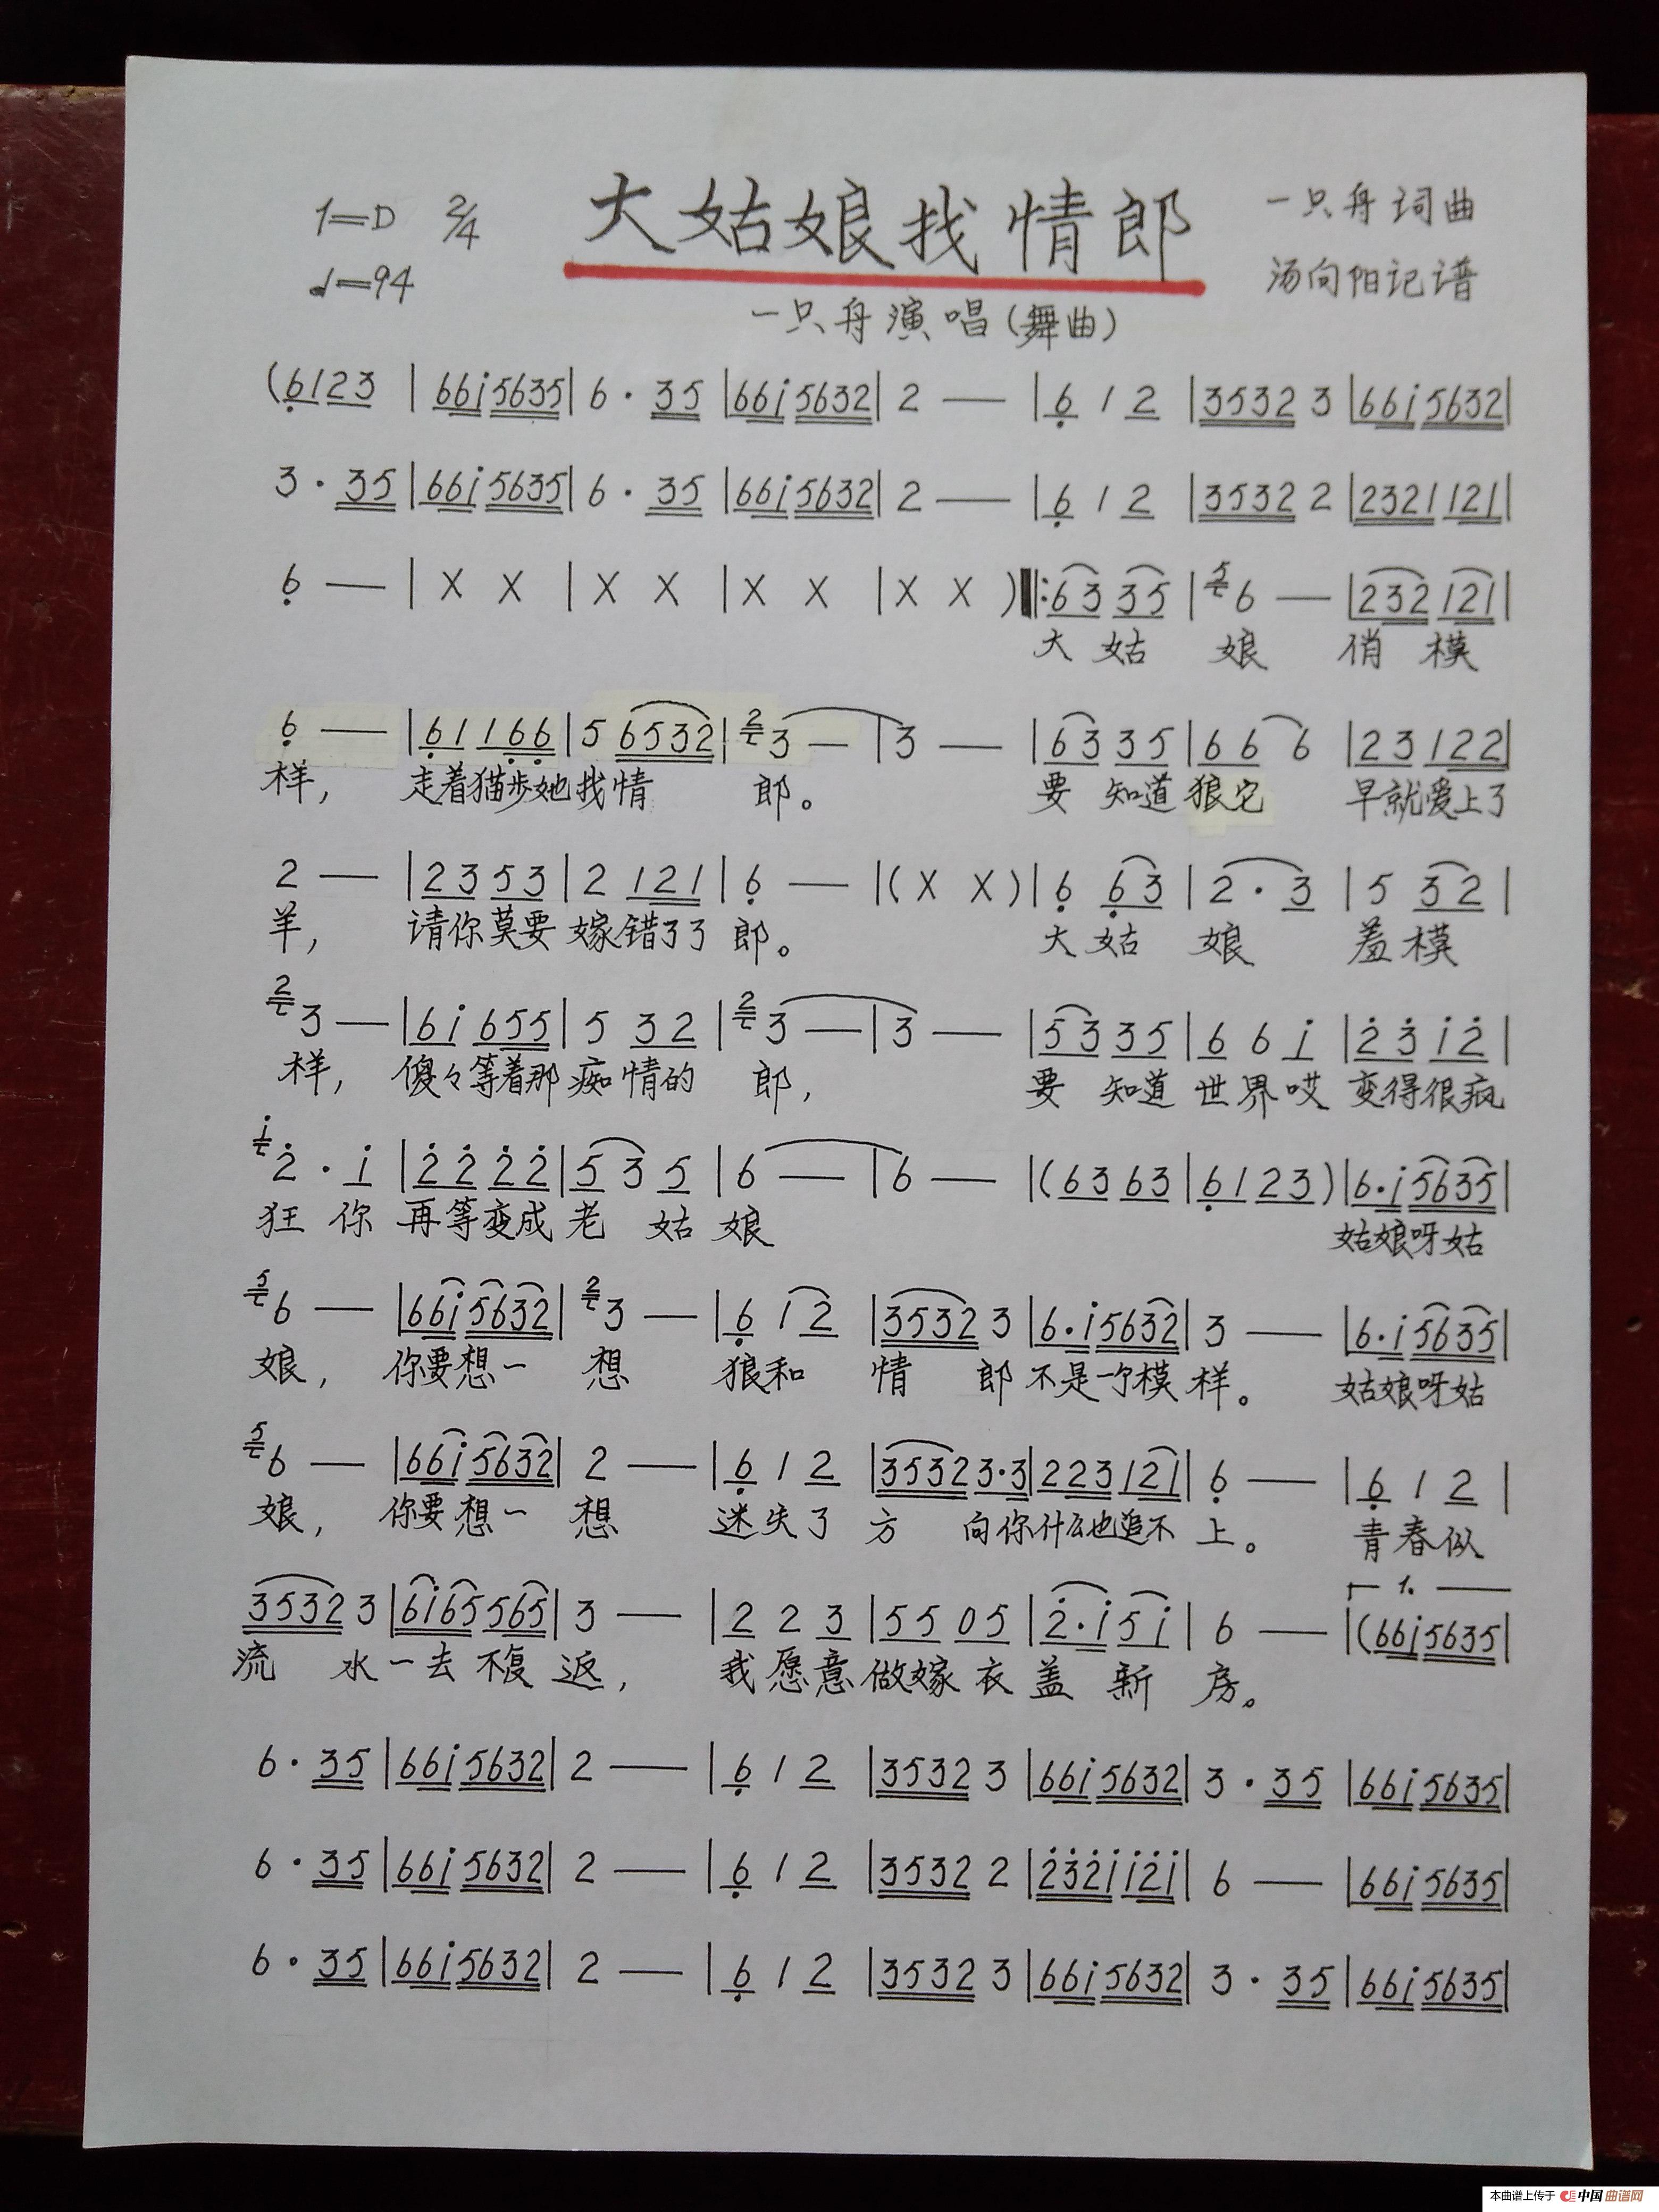 1=D 2/4 大姑娘找情郎 一只舟词曲
♩=94 汤向阳记谱
一只舟演唱(舞曲)
(6123 | 66i5635 | 6·35 | 66i5632 | 2 — | 6 1 2 | 3532 3 | 66i5632 |
3·35 | 66i5635 | 6·35 | 66i5632 | 2 — | 6 1 2 | 3532 2 | 2321 121 |
6 — | X X | X X | X X | X X ) ‖: 63 35 | 5 6 — | 232 121 |
大 姑 娘 俏 模
6 — | 61 166 | 5 6532 | 2 3 — | 3 — | 63 35 | 6 6 6 | 23 122 |
样, 走着猫步她找情 郎。 要 知道 狼它 早就爱上了
2 — | 23 53 | 2 121 | 6 — | (X X) | 6 63 | 2·3 | 5 32 |
羊, 请你莫要 嫁错了了 郎。 大 姑 娘 羞模
2 3 — | 6i 655 | 5 32 | 2 3 — | 3 — | 53 35 | 6 6 i | 23 i2 |
样, 傻々等着那 痴情的 郎, 要 知道 世界哎 变得很疯
i 2·i | 22 22 | 5 3 5 | 6 — | 6 — | (63 63 | 61 23) | 6·i 5635 |
狂 你 再等变成 老 姑 娘 姑娘呀姑
5 6 — | 66i 5632 | 2 3 — | 6 12 | 3532 3 | 6·i 5632 | 3 — | 6·i 5635 |
娘, 你要想一 想 狼和 情 郎 不是一个模 样。 姑娘呀姑
5 6 — | 66i 5632 | 2 — | 6 1 2 | 3532 3·3 | 223 121 | 6 — | 6 1 2 |
娘, 你要想一 想 迷失了 方 向你什么也追不 上。 青春似
1.
3532 3 | 6i65 565 | 3 — | 2 2 3 | 55 05 | 2·i 5i | 6 — | (66i5635 |
流 水一去 不复 返, 我愿意 做嫁 衣 盖 新 房。
6·35 | 66i5632 | 2 — | 6 1 2 | 3532 3 | 66i5632 | 3·35 | 66i5635 |
6·35 | 66i5632 | 2 — | 6 1 2 | 3532 2 | 232i i2i | 6 — | 66i5635 |
6·35 | 66i5632 | 2 — | 6 1 2 | 3532 3 | 66i5632 | 3·35 | 66i5635 |
本曲谱上传于 中国曲谱网